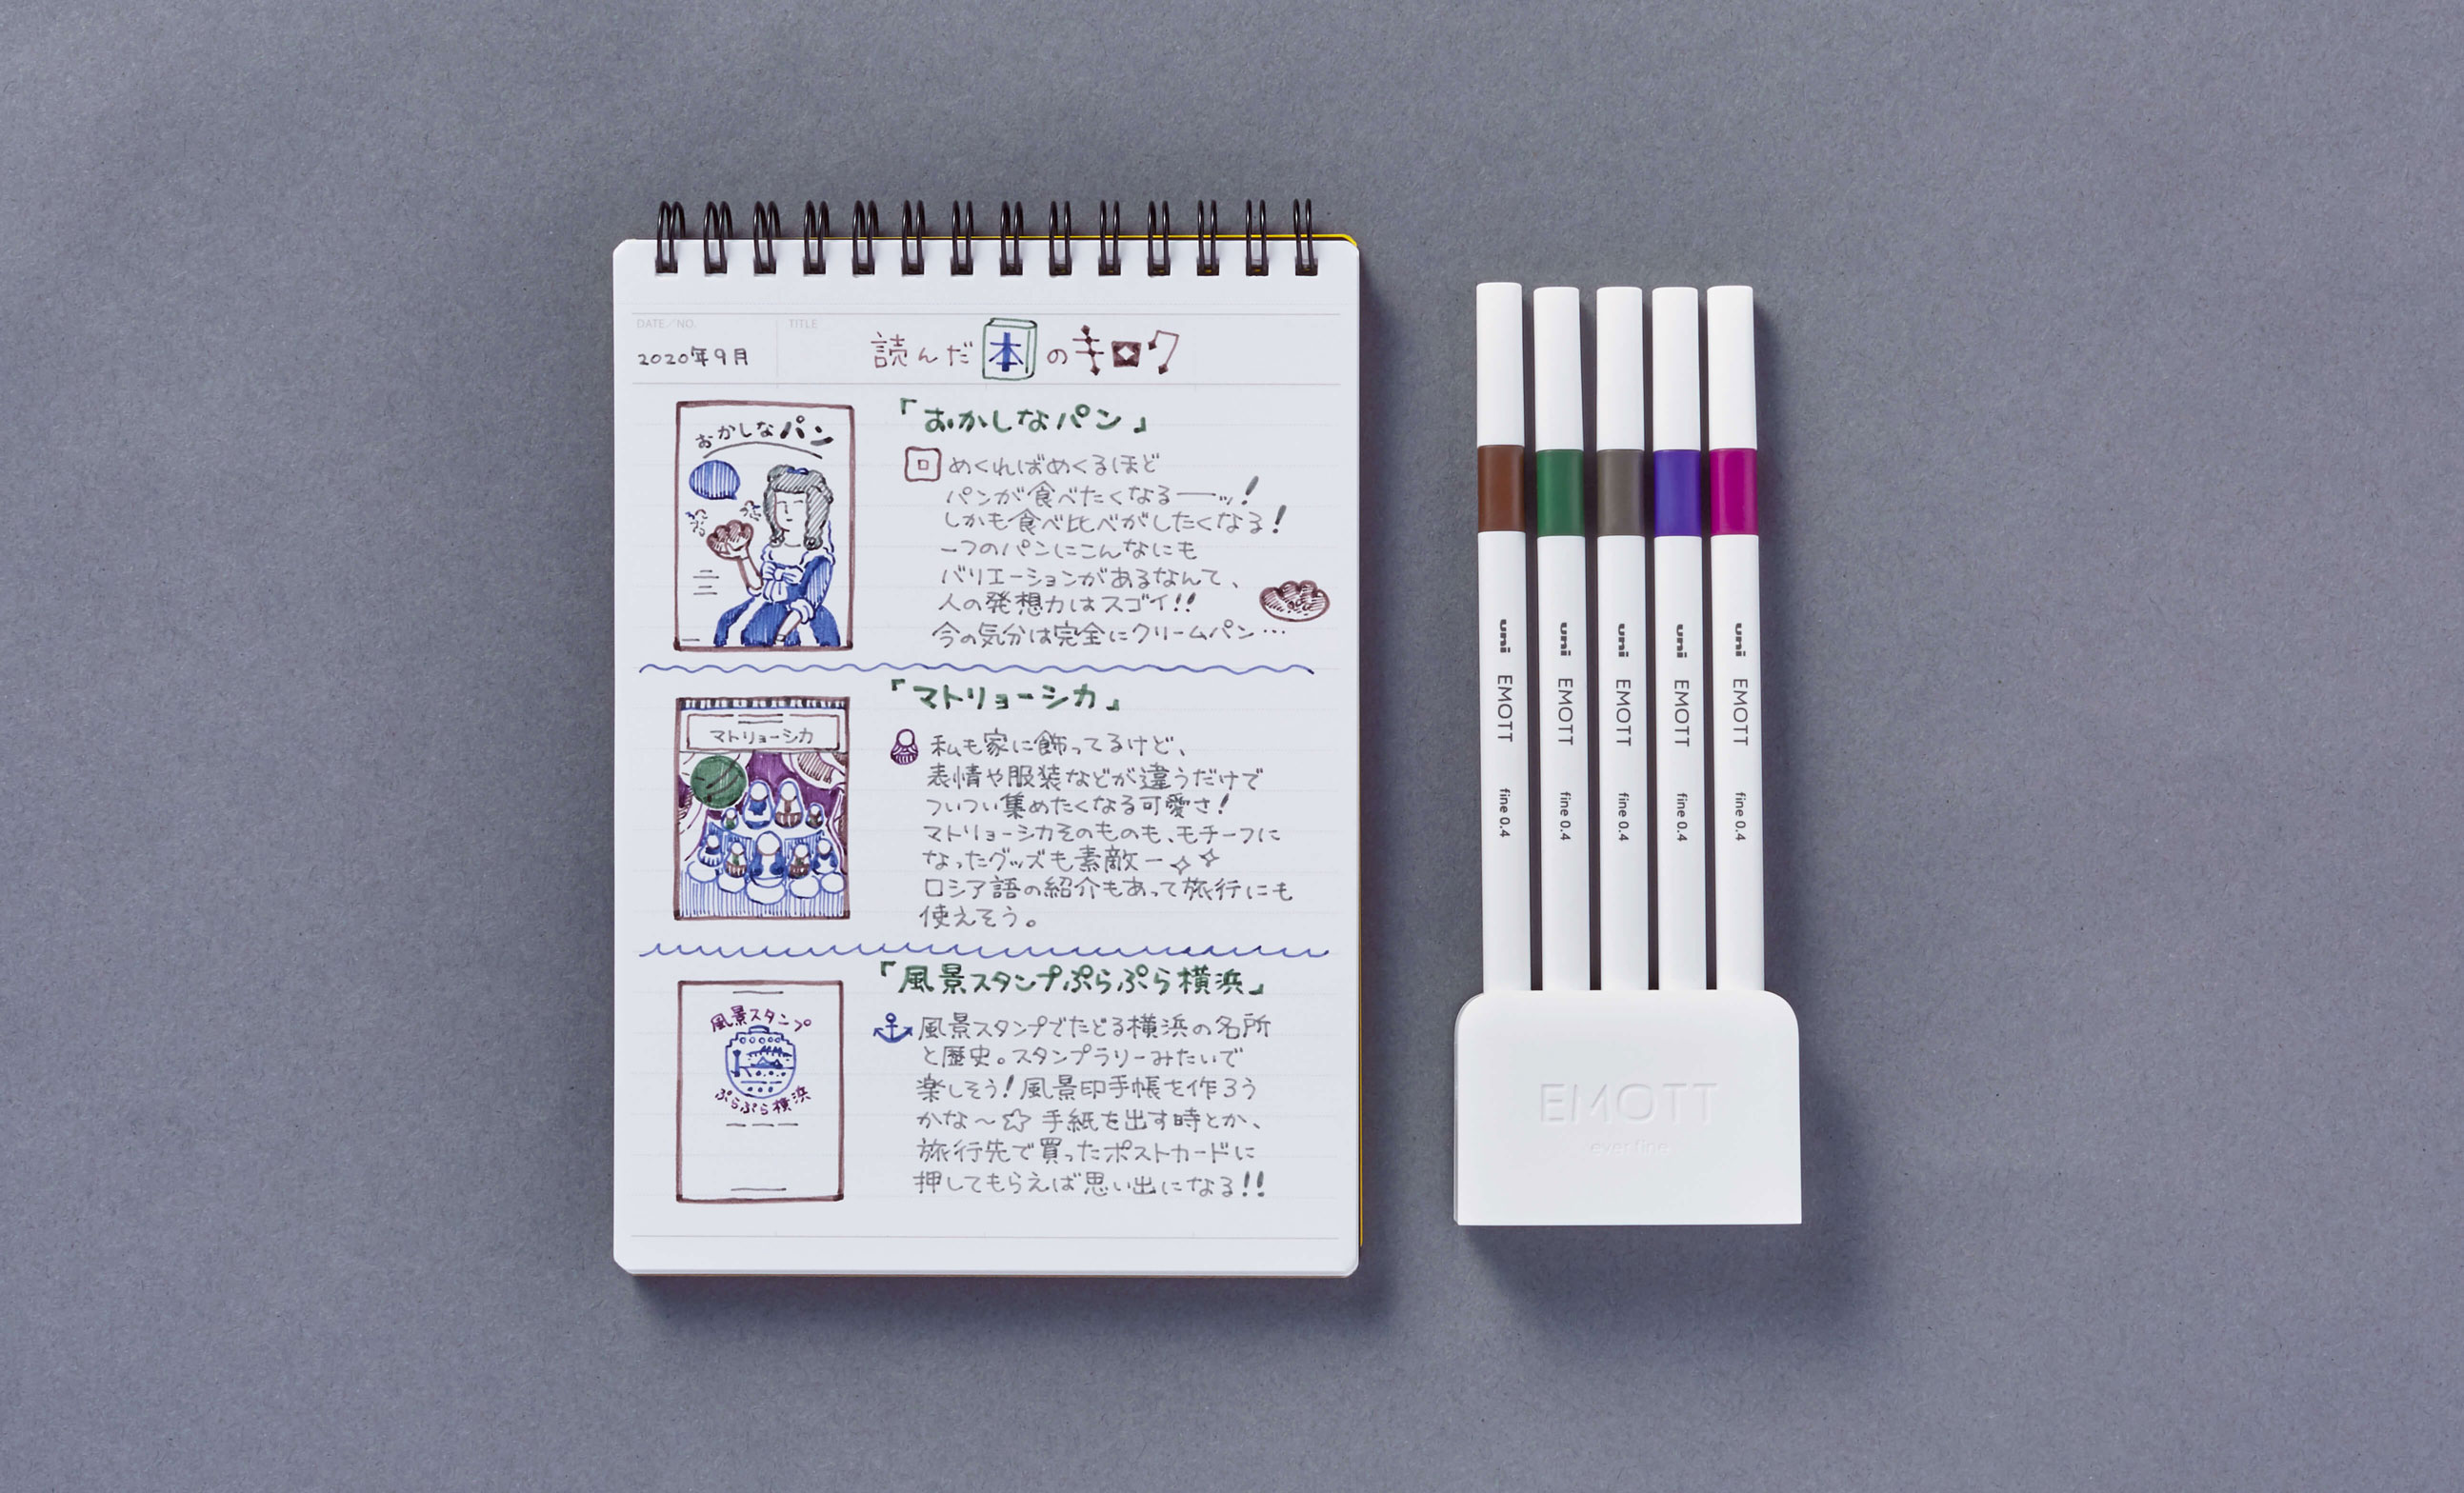 DATE/NO.
TITLE
2020年9月
読んだ本のキロク
おかしなパン
「おかしなパン」
めくればめくるほど
パンが食べたくなるーーッ!
しかも食べ比べがしたくなる!
一つのパンにこんなにも
バリエーションがあるなんて、
人の発想力はスゴイ!!
今の気分は完全にクリームパン…
マトリョーシカ
「マトリョーシカ」
私も家に飾ってるけど、
表情や服装などが違うだけで
ついつい集めたくなる可愛さ!
マトリョーシカそのものも、モチーフに
なったグッズも素敵ー
ロシア語の紹介もあって旅行にも
使えそう。
風景スタンプ
ぷらぷら横浜
「風景スタンプぷらぷら横浜」
風景スタンプでたどる横浜の名所
と歴史。スタンプラリーみたいで
楽しそう!風景印手帳を作ろう
かな〜☆ 手紙を出す時とか、
旅行先で買ったポストカードに
押してもらえば思い出になる!!
uni EMOTT fine 0.4
uni EMOTT fine 0.4
uni EMOTT fine 0.4
uni EMOTT fine 0.4
uni EMOTT fine 0.4
EMOTT
everfine